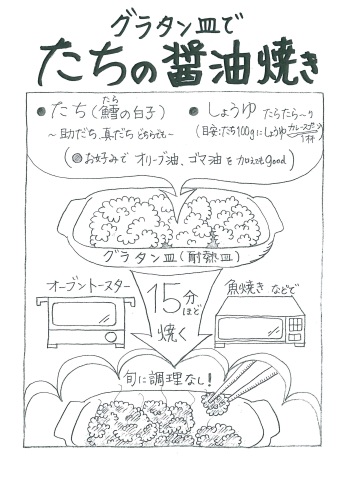 グラタン皿で
たちの醤油焼き
●たち(鱈の白子)
たら
●しょうゆ たらたら〜り
〜助だち、真だち どちらでも〜
(目安:たち100gにしょうゆカレースプーン1杯)
(●お好みで オリーブ油、ゴマ油を加えてもgood)
グラタン皿(耐熱皿)
オーブントースター
15分ほど焼く
魚焼き などで
旬に調理なし!